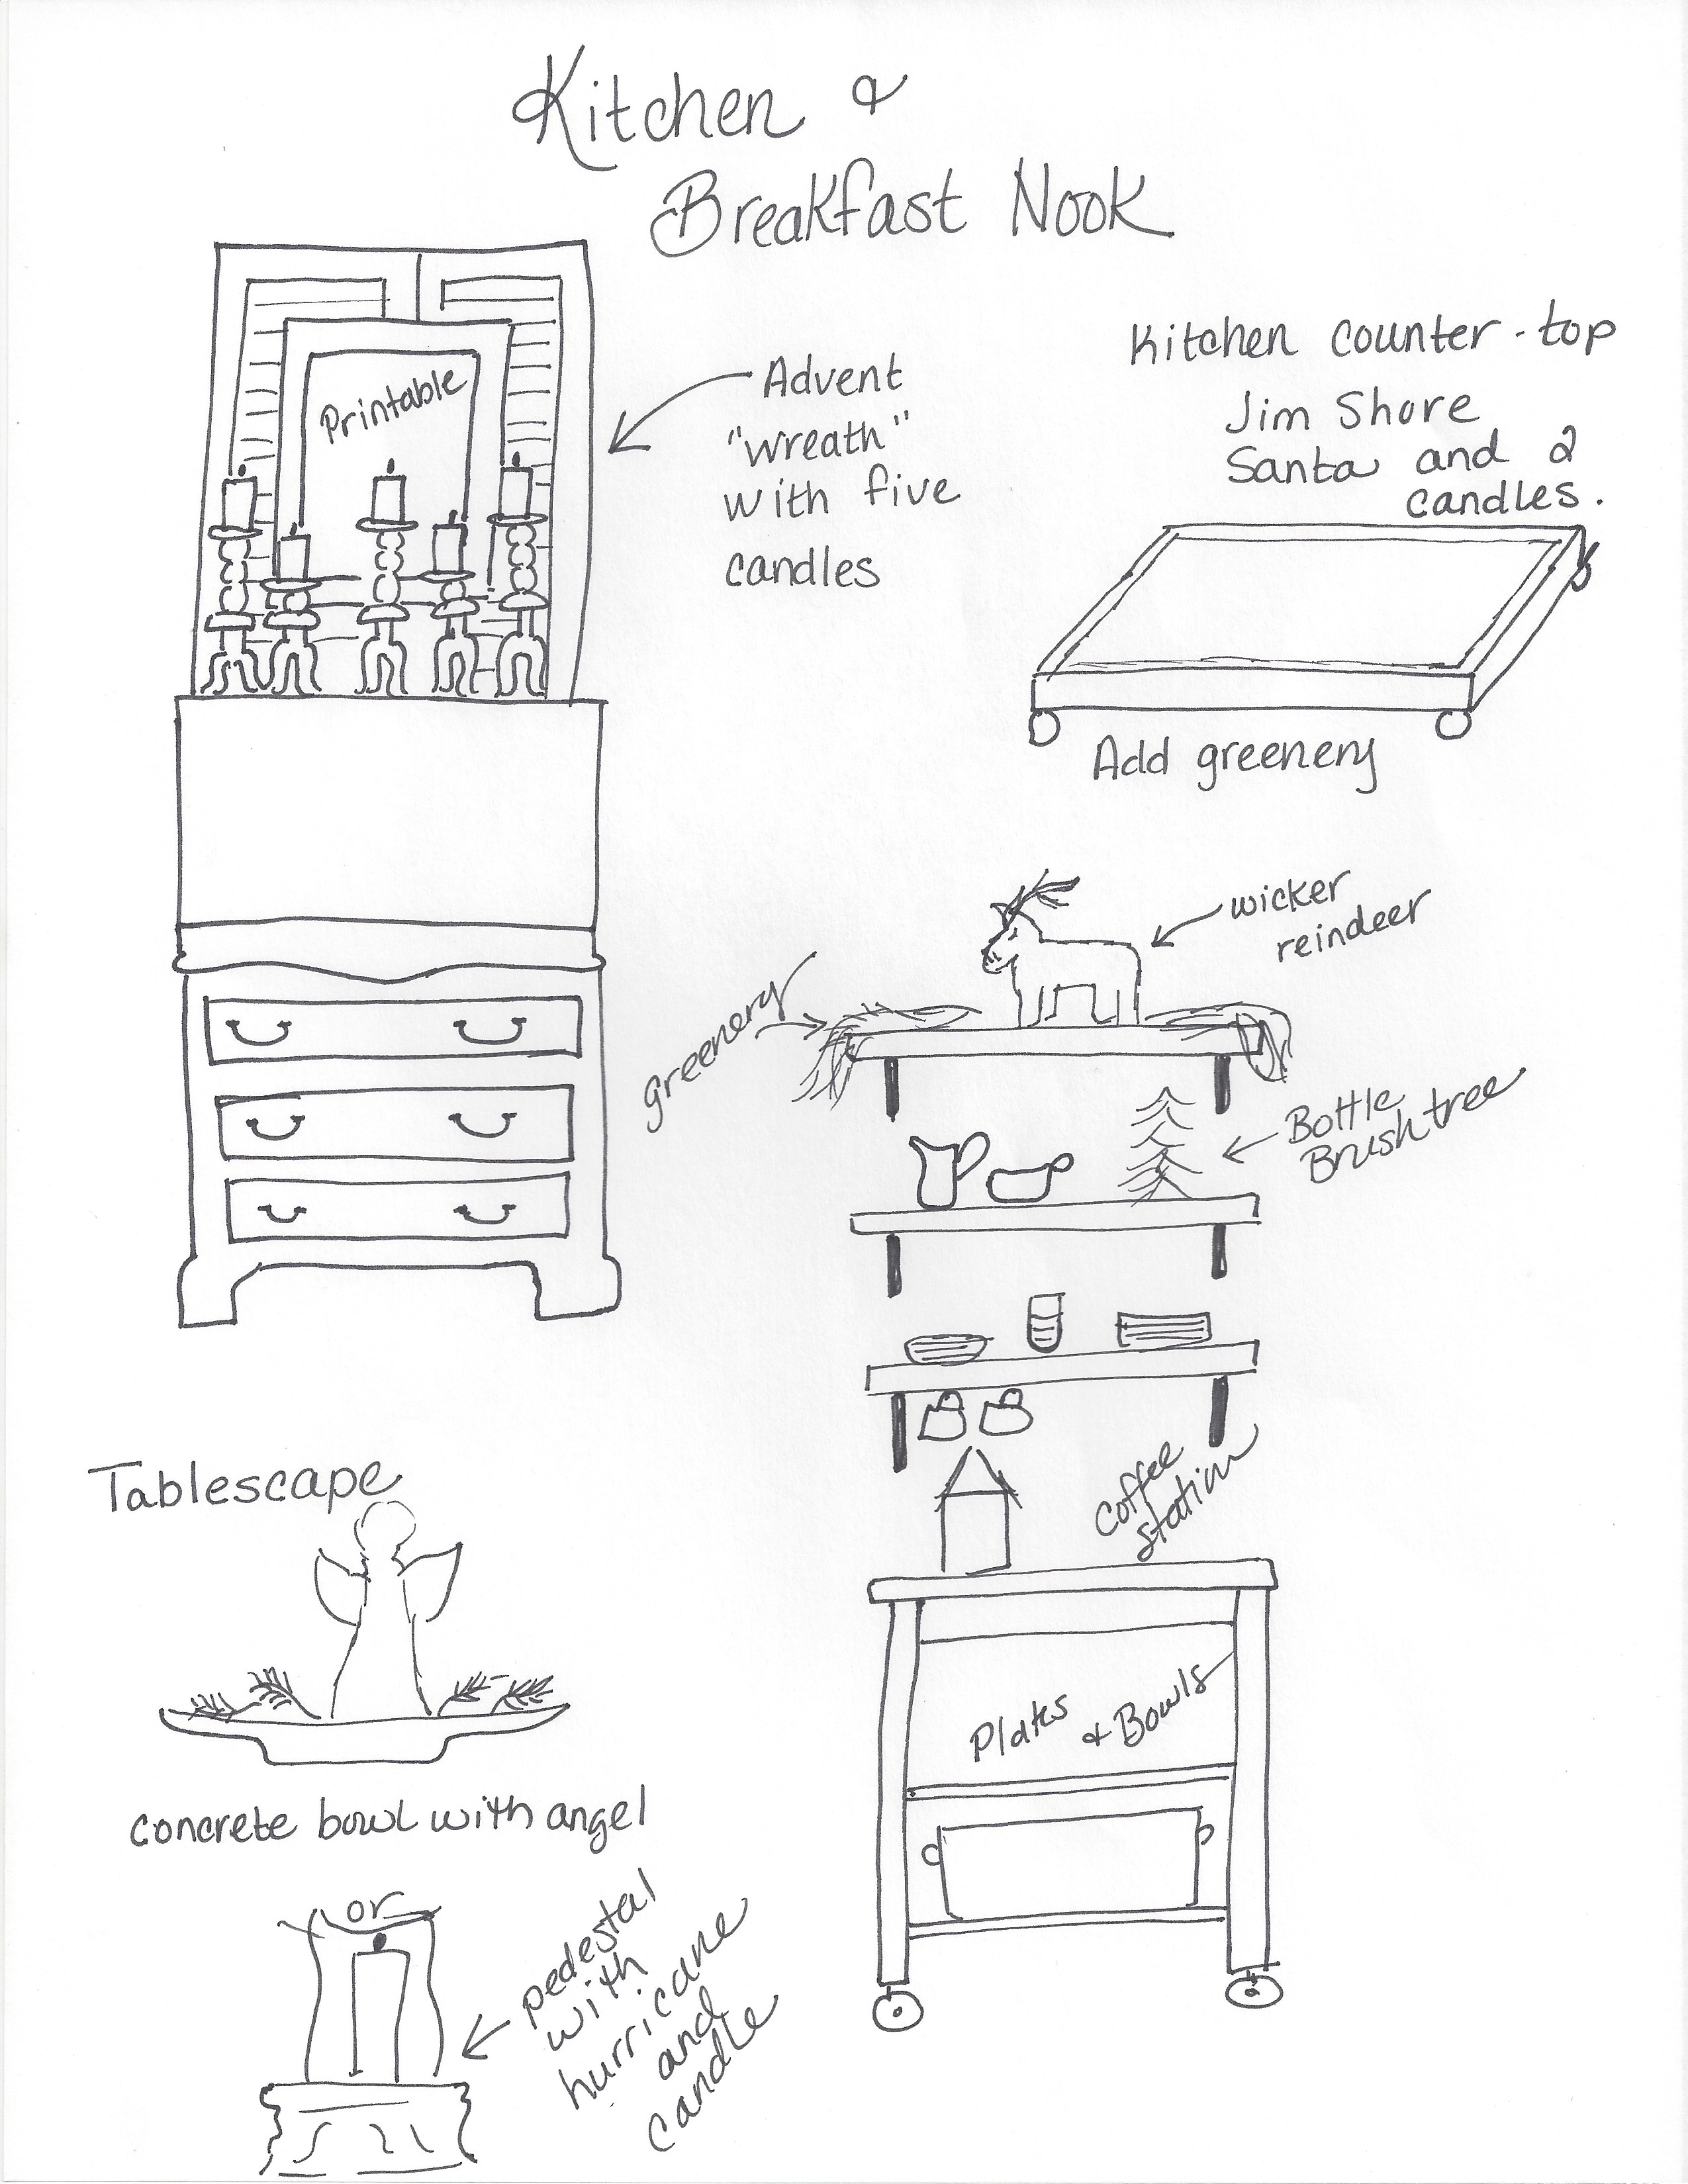 Kitchen &
Breakfast Nook
Printable
Advent
"wreath"
with five
candles
Kitchen counter-top
Jim Shore
Santa and 2
candles.
Add greenery
wicker
reindeer
greenery
Bottle
Brush tree
Coffee
station
Plates
& Bowls
Tablescape
concrete bowl with angel
or
pedestal
with
hurricane
and
candle